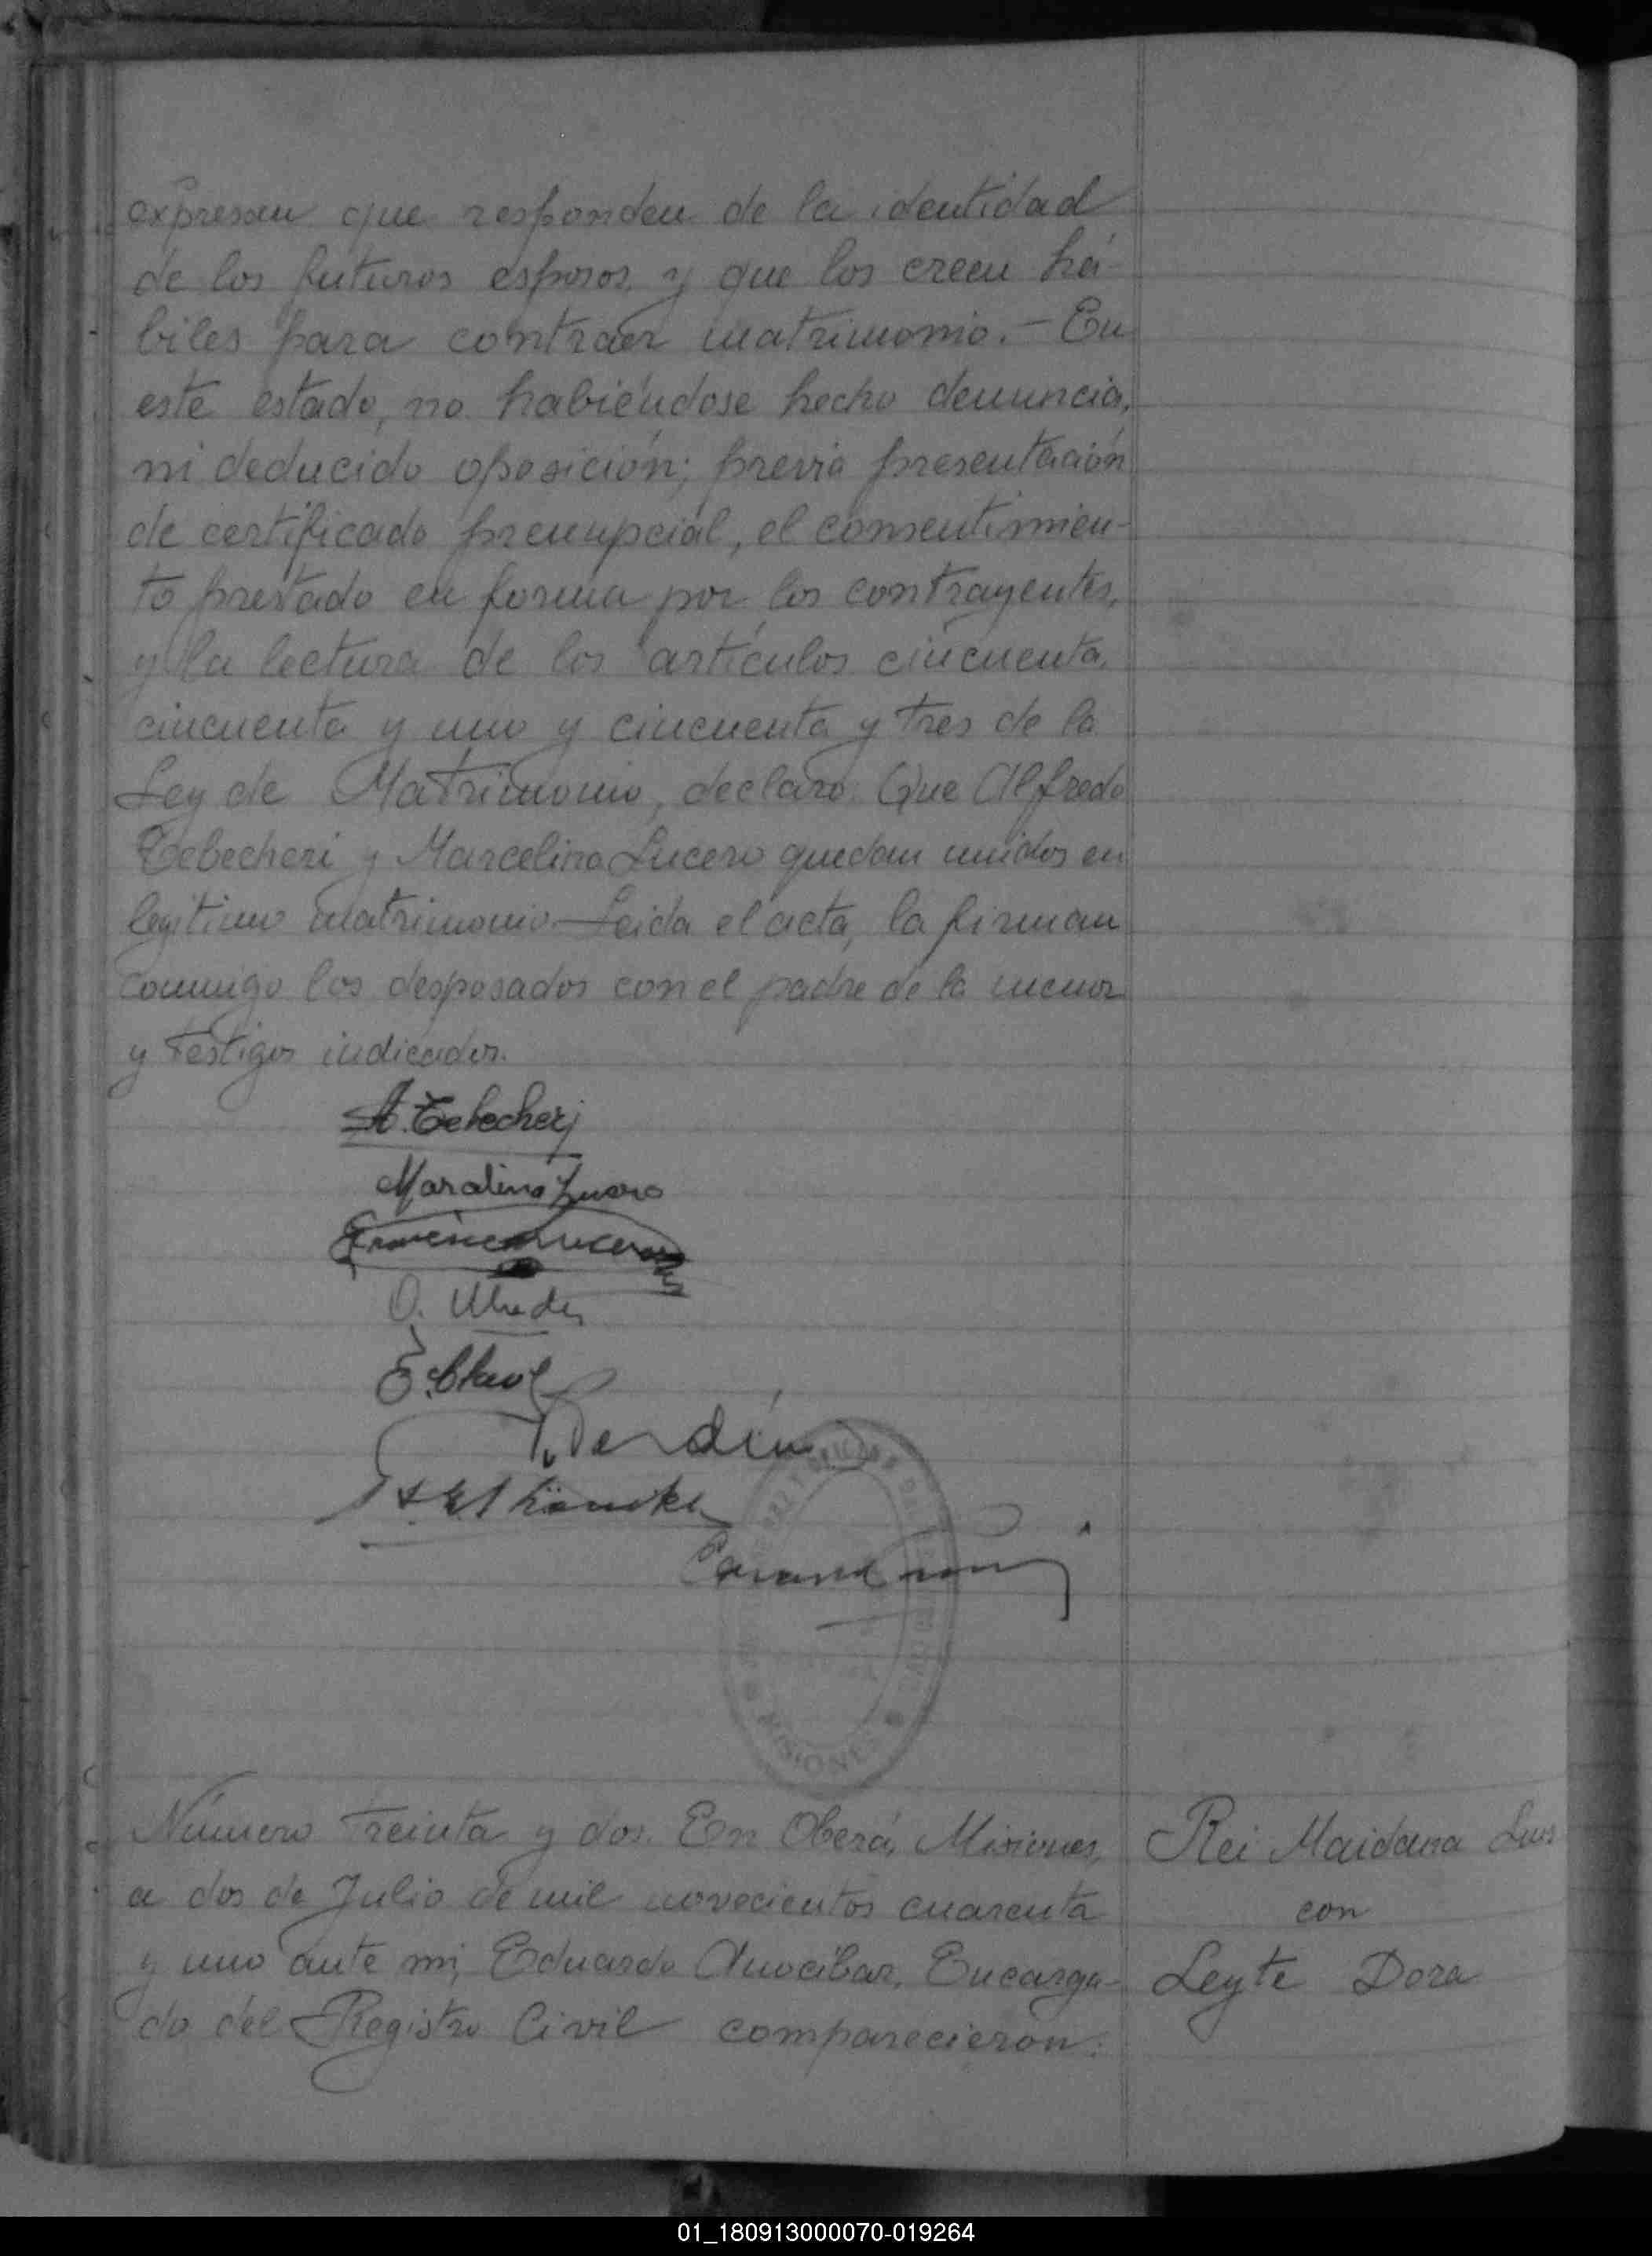 expresan que responden de la identidad
de los futuros esposos, y que los creen há-
biles para contraer matrimonio.- En
este estado, no habiéndose hecho denuncia,
ni deducido oposición; previa presentación
de certificado prenupcial, el consentimien-
to prestado en forma por los contrayentes,
y la lectura de los artículos cincuenta,
cincuenta y uno y cincuenta y tres de la
Ley de Matrimonio, declaro: Que Alfredo
Tebecheri y Marcelina Lucero quedan unidos en
legítimo matrimonio.- Leida el acta, la firman
conmigo los desposados con el padre de la menor
y testigos indicados.
A. Tebecherj
Marcelina Lucero
Lucero
O.
E.
MISIONES
Número treinta y dos. En Oberá, Misiones,
a dos de Julio de mil novecientos cuarenta
y uno ante mi, Eduardo Anocibar, Encarga-
do del Registro Civil comparecieron:
Rei Maidana Luis
con
Leyte Dora
01_180913000070-019264